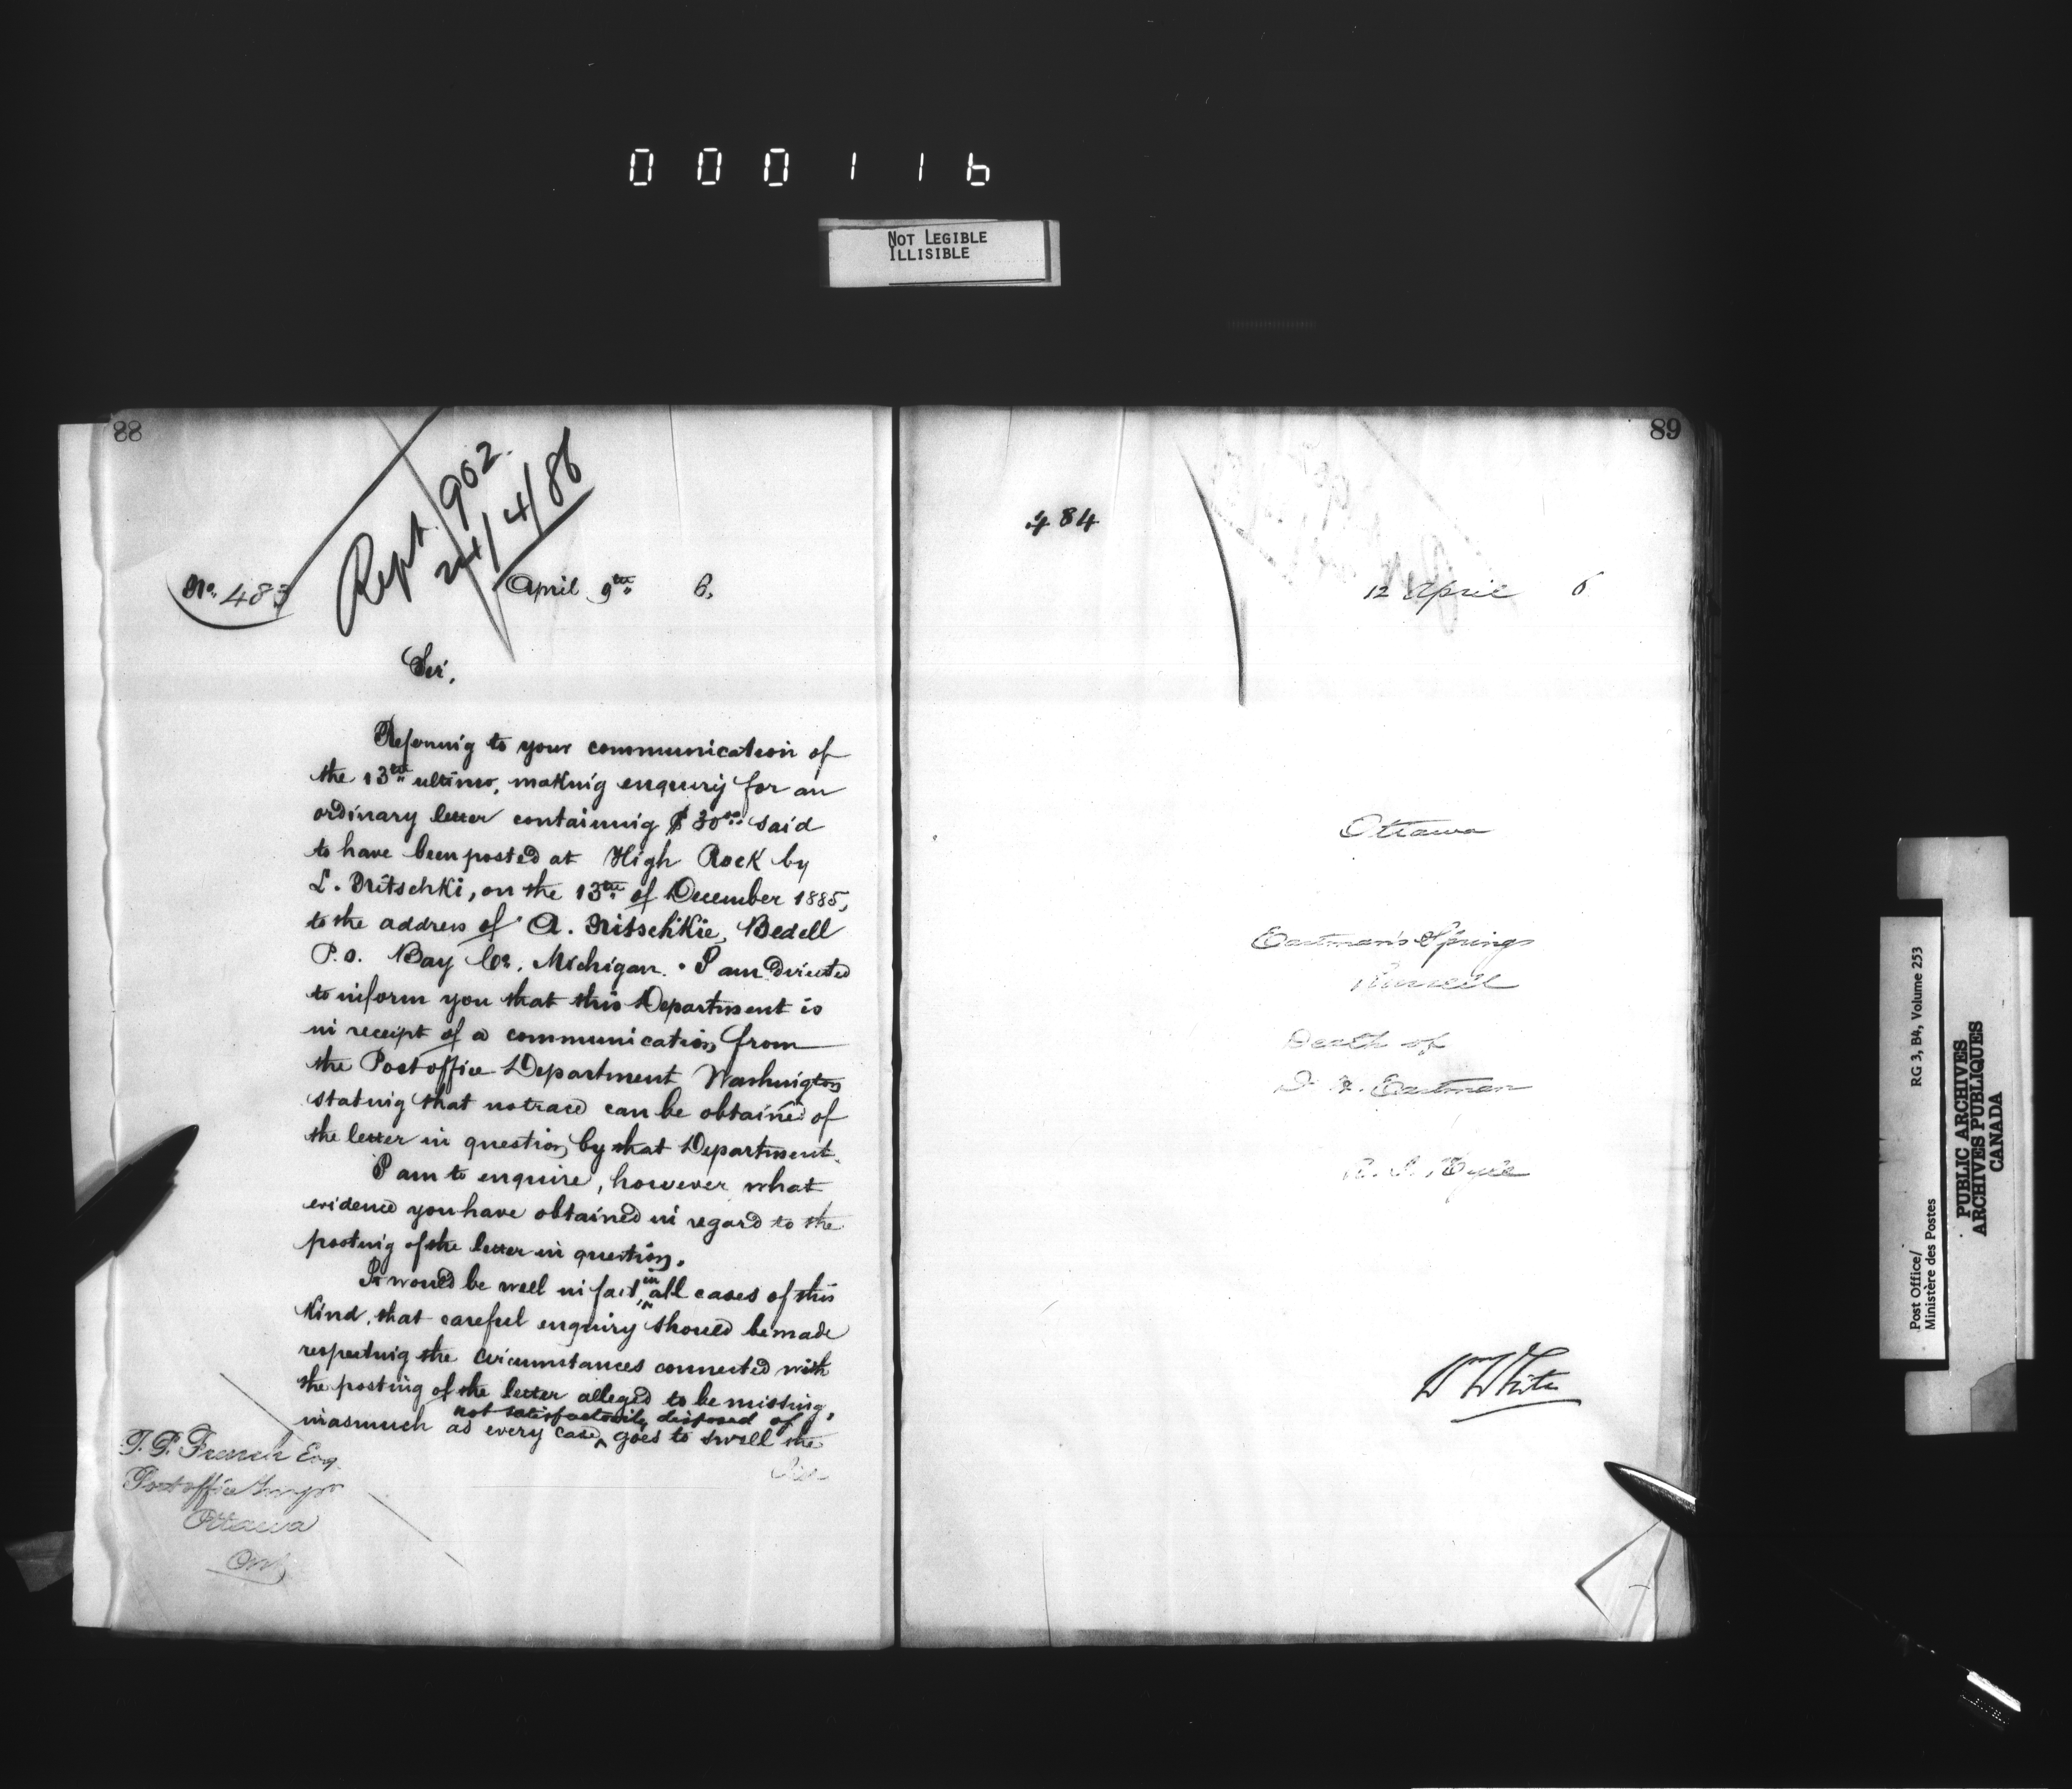 000116
NOT LEGIBLE
ILLISIBLE
88
Rept. 902.
24/4/86
No. 483
April 9th 6.
Sir,
Referring to your communication of
the 13th ultimo, making enquiry for an
ordinary letter containing $30.00 said
to have been posted at High Rock by
L. Nitschki, on the 13th of December 1885,
to the address of A. Nitschkie, Bedell
P.O. Bay Co. Michigan. I am directed
to inform you that this Department is
in receipt of a communication from
the Post office Department Washington
stating that no trace can be obtained of
the letter in question by that Department.
I am to enquire, however what
evidence you have obtained in regard to the
posting of the letter in question.
It would be well in fact, in all cases of this
kind, that careful enquiry should be made
respecting the circumstances connected with
the posting of the letter alleged to be missing,
inasmuch as every case not satisfactorily disposed of goes to swell the
T. P. French Esq.
Post office Inspr
Ottawa
Ont
89
484
12 April 6
Ottawa
Eastman's Springs
Russell
Death of
Eastman
Wm White
Post Office/
Ministère des Postes
RG 3, B4, Volume 253
PUBLIC ARCHIVES
ARCHIVES PUBLIQUES
CANADA